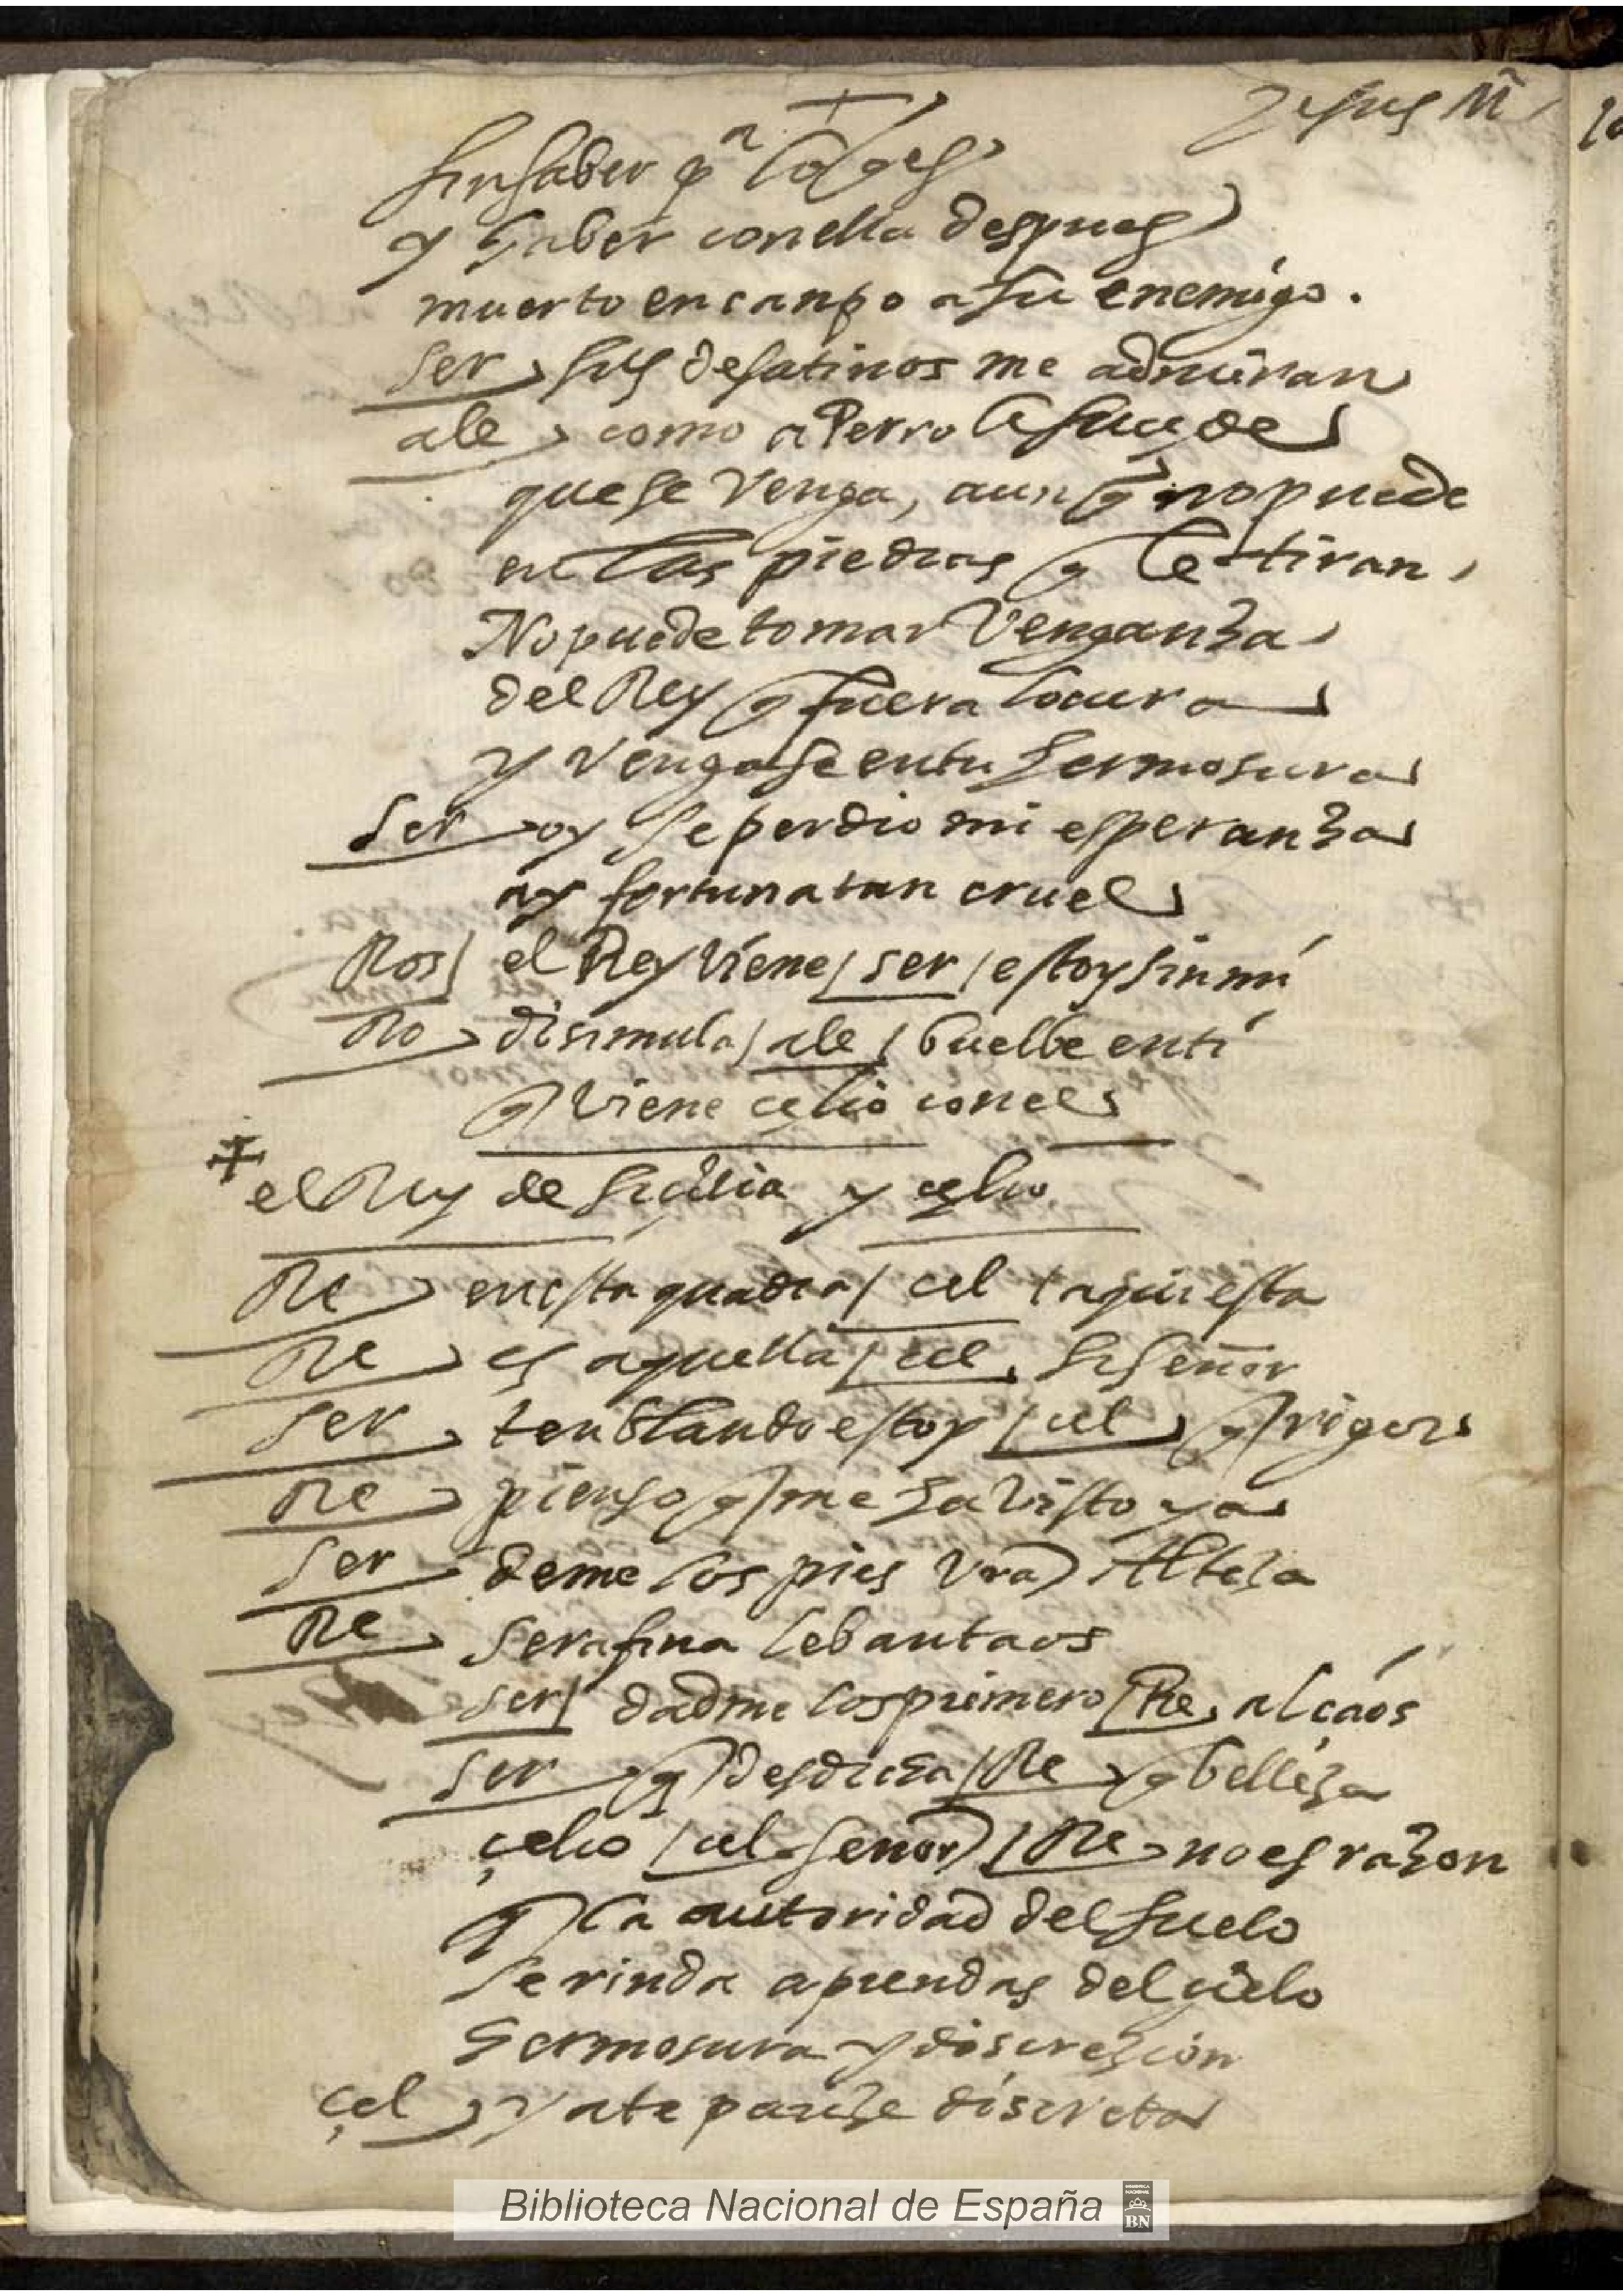 Jesus Mª
sin saber pª lo q es
y haber con ella despues
muerto en canpo a su enemigo.
Ser sus desatinos me admiran
ale como a Perro le suçede
que se venga, aunq no puede
en las piedras q le tiran,
No puede tomar venganza
del Rey q fuera locura
y vengase en tu hermosura
Ser oy se perdio mi esperanza
ay fortuna tan cruel
Ros / el Rey viene / ser / estoy sin mi
Ro disimula / ale / buelbe en ti
q viene çelio con el
el Rey de siçilia y çelio
Re en esta quadra / cel / aqui esta
Re es aquella / cel, si señor
Ser tenblando estoy / cel q rigor
Re pienso q me ha visto ya
Ser deme los pies vra Alteza
Re Serafina lebantaos
ser / dadme los primero / Re, alçaos
ser q desdicha / Re q belleza
çelio / cel señor / Re no es razon
q la autoridad del suelo
se rinda a prendas del çielo
hermosura y discrezion
çel y a te pareze discreta
Biblioteca Nacional de España
BN